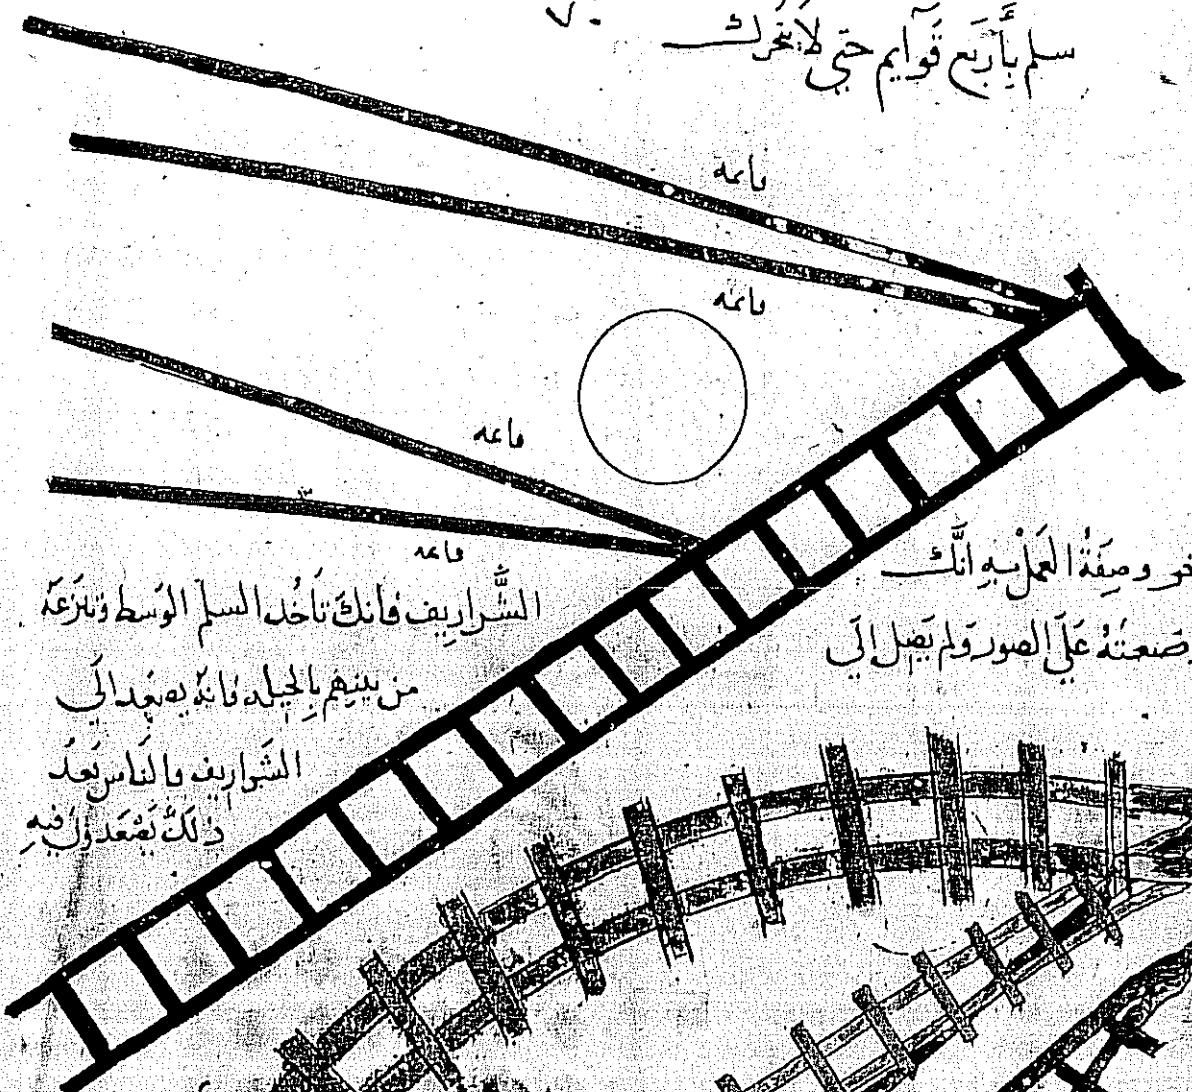 سلم بِأَربَع قَوَايم حَتي لاَ يتَحَرك
قايمه
قايمه
قايمه
قايمه
وصِفَةُ العَمل بِهِ انَّك
وَضَعتَهُ عَلَي الصور وَلم يَصِل إلَي
الشَّرَارِيف فانكَ تاَخُد السلم الوَسط وَتنزعَهُ
من بَينِهم بِالحيله فانهُ يصعَد الَي
الشَرَاريف والنَاس بَعدَ
ذلكَ يَصْعَدوُن فيهِ